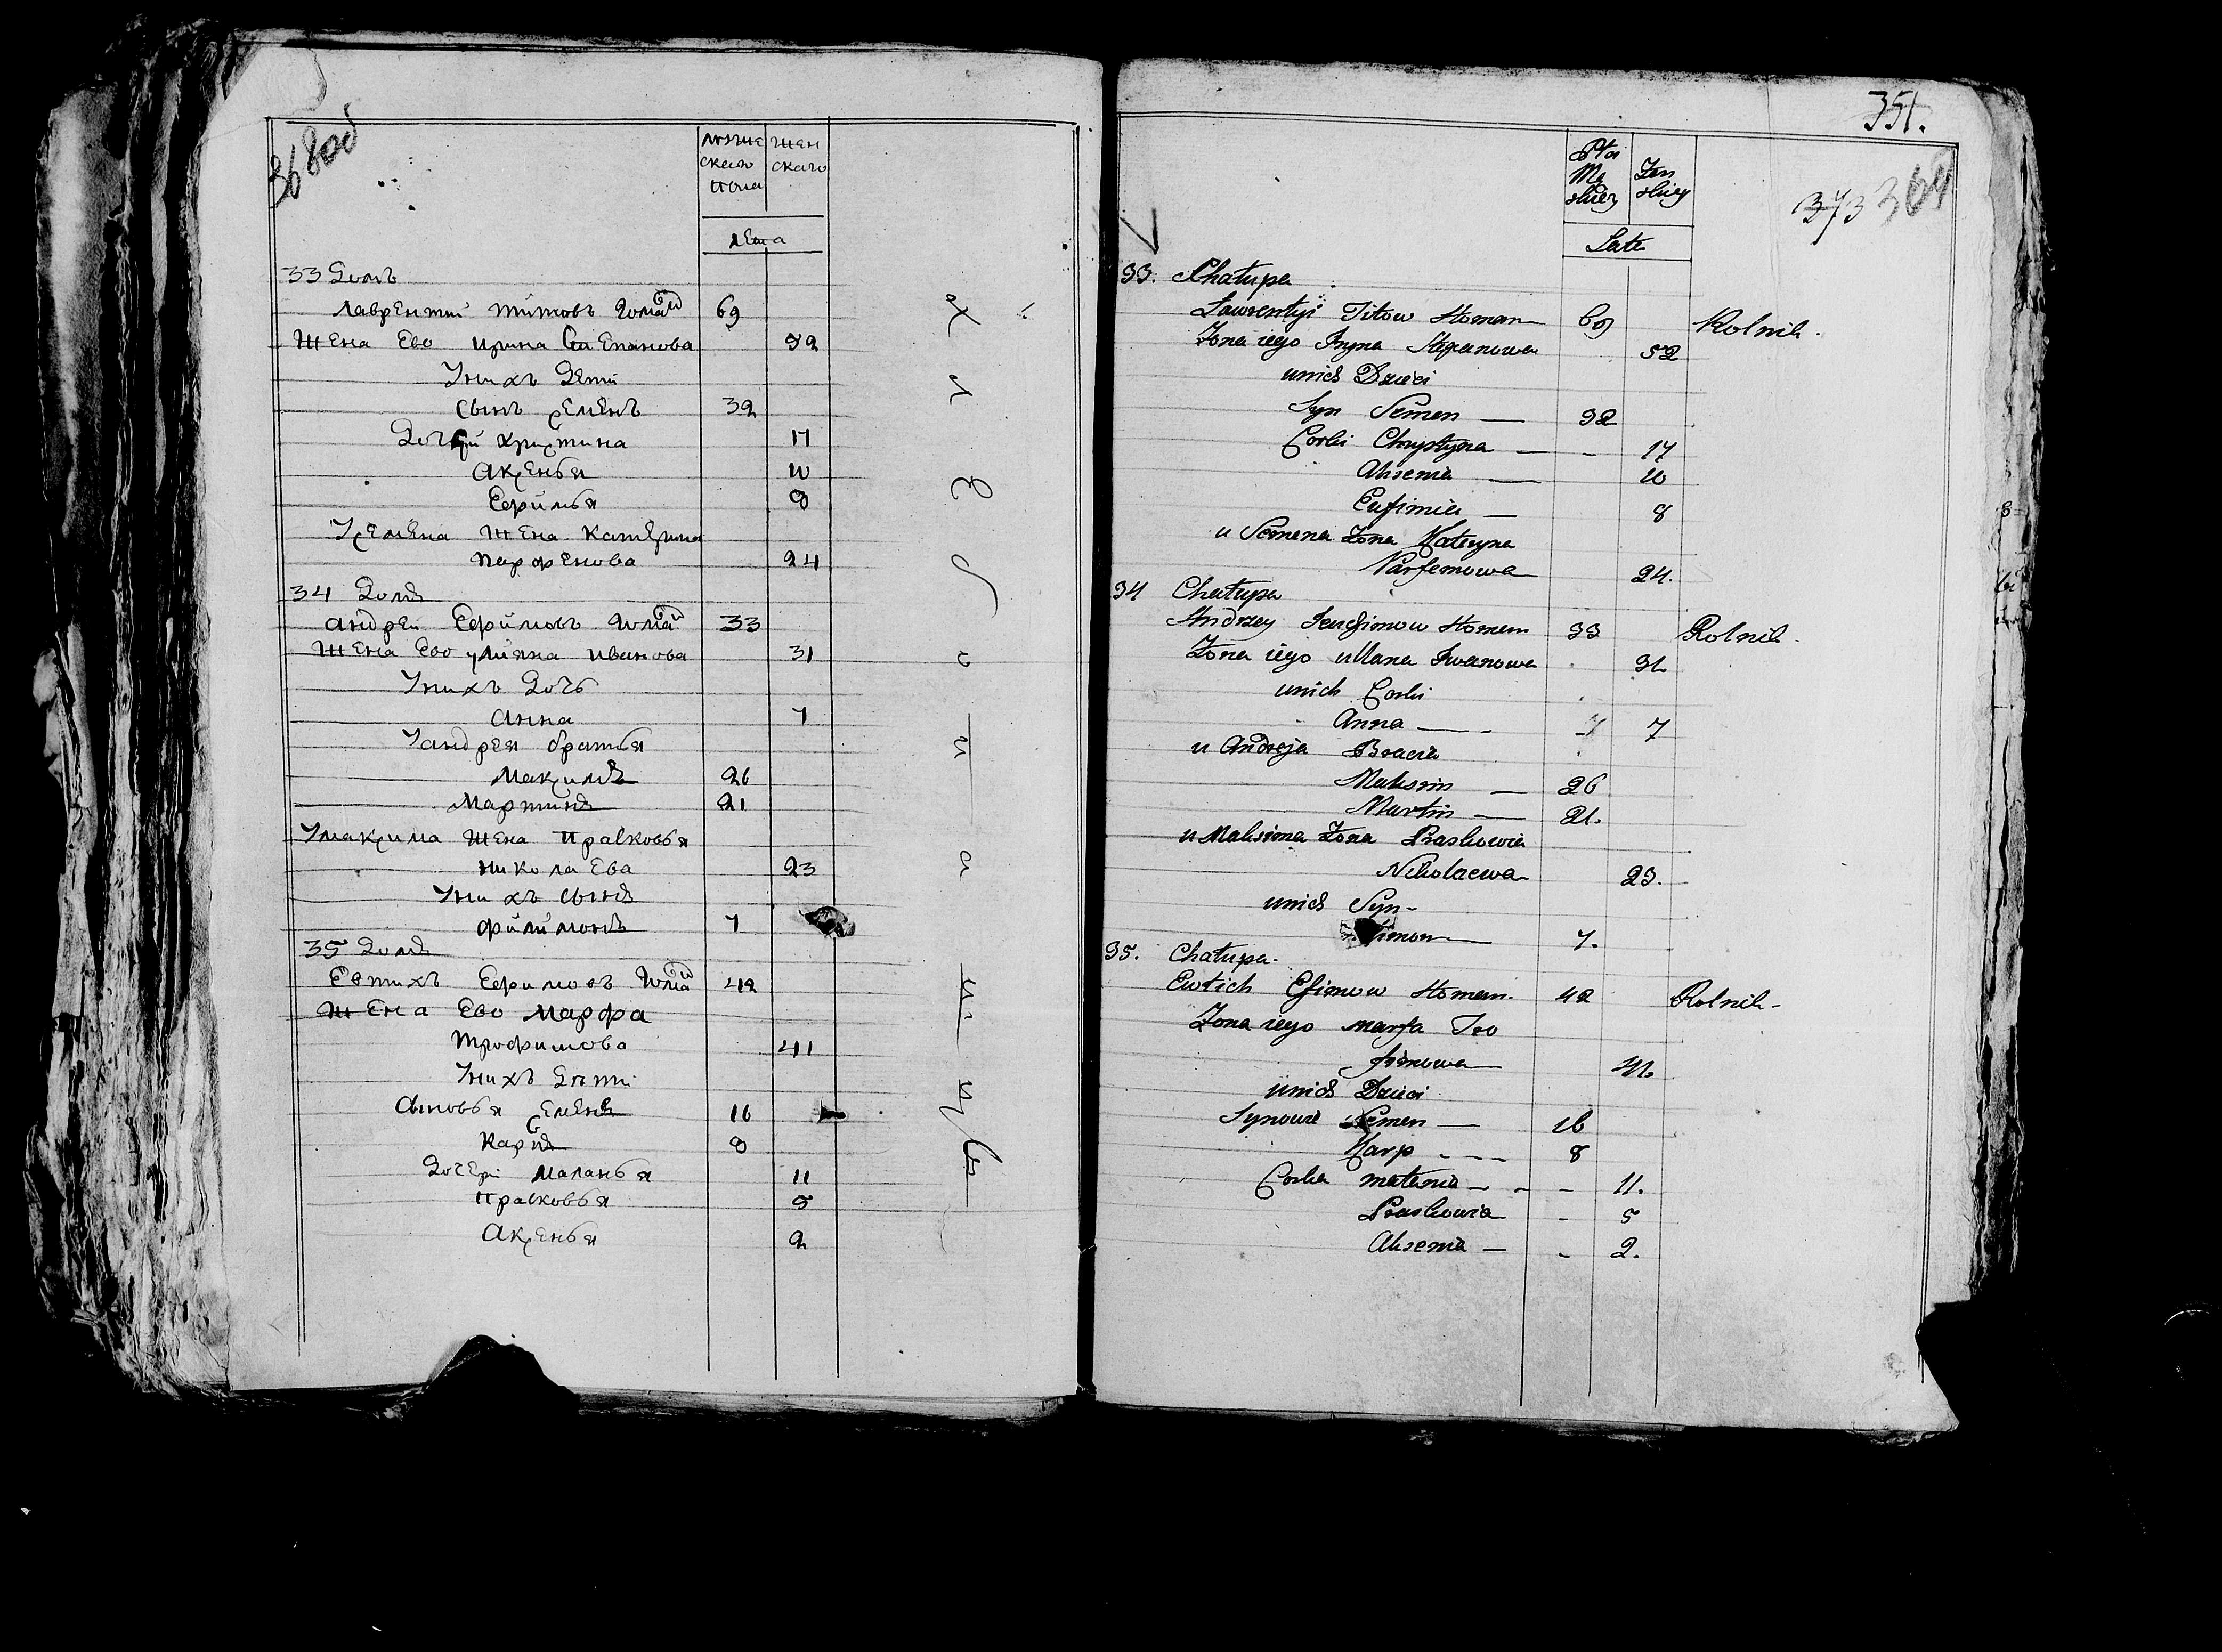 368об
мужескаго пола
женскаго
лета
33 Домъ
Лаврентий Титовъ Гоман 69
жена Ево Ирина Степанова 52
Унихъ Дети
сынъ семенъ 32
Дочери христина 17
Аксенья 10
Ефимья 8
Усемена жена Катерина
парфенова 24
34 Домъ
андрей Ефимовъ Гоман 33
жена Ево улияна иванова 31
Унихъ Дочь
анна 7
Уандрея братья
максимъ 26
мартинъ 21
Умаксима жена Прасковья
николаева 23
Унихъ сынъ
филимонъ 7
35 Домъ
Евтихъ Ефимовъ Гоман 42
жена Ево Марфа
трофимова 41
Унихъ дети
сыновья семенъ 16
карпъ 8
Дочери маланья
11
прасковья 5
Аксенья 2
х
л
е
б
о
п
а
ш
ц
ы
351.
Płci Męskiey
Żenskiey
373 369
Lata
33. Chałupa
Lawrentyi Titow Homan 69 Rolnik.
Żona iego Iryna Stepanowa 52
unich Dzieci
Syn Semen — 32
Corki Chrystyna — - 17
Aksenia — 10
Eufimia — 8
u Semena Żona Kateryna
Parfenowa 24.
34 Chałupa
Andrzey Jeuchimow Homan 33 Rolnik.
Żona iego ullana Iwanowa 31
unich Corki
Anna — 7
u Andreja Bracia
Maksim — 26
Martin — 21.
u Maksima Żona Praskowia
Nikołaewa 23.
unich Syn -
limon — 7.
35. Chałupa.
Ewtich Efimow Homan. 42 Rolnik -
Żona iego marfa Tro
fimowa 41.
unich Dzieci
Synowie Semen — 16
Karp - - - 8
Corka małania — - - 11.
Praskowia - 5
Aksenia — - 2.